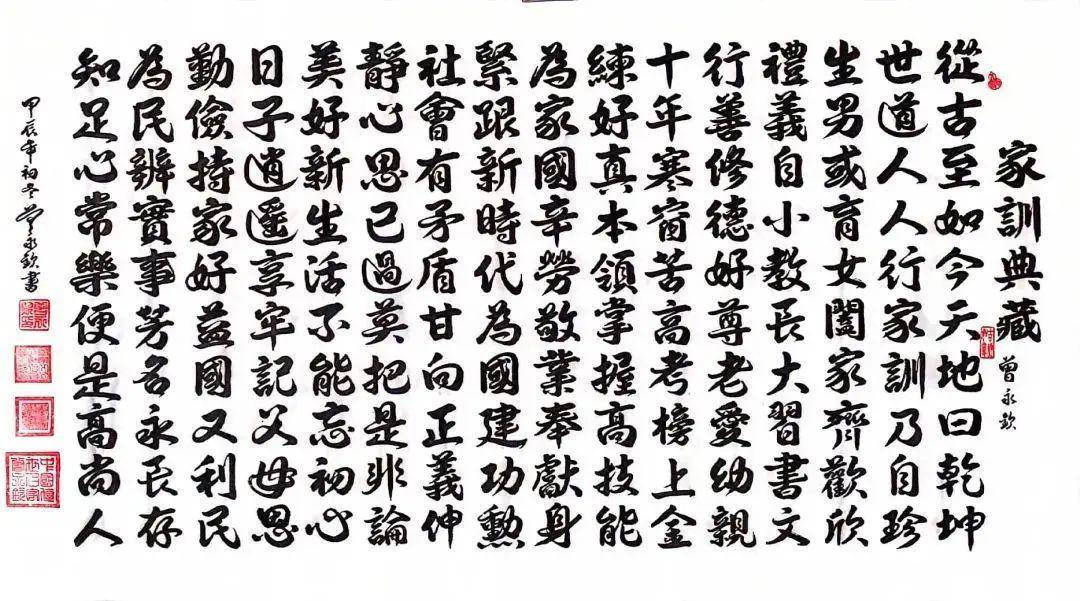 家訓典藏
曾永欽
從古至如今天地曰乾坤
世道人人行家訓乃自珍
生男或育女闔家齊歡欣
禮義自小教長大習書文
行善修德好尊老愛幼親
十年寒窗苦高考榜上金
練好真本領掌握高技能
為家國辛勞敬業奉獻身
緊跟新時代為國建功勳
社會有矛盾甘向正義伸
靜心思已過莫把是非論
美好新生活不能忘初心
日子逍遥享牢記父母恩
勤儉持家好益國又利民
為民辦實事芳名永長存
知足心常樂便是高尚人
甲辰年初冬曾永欽書